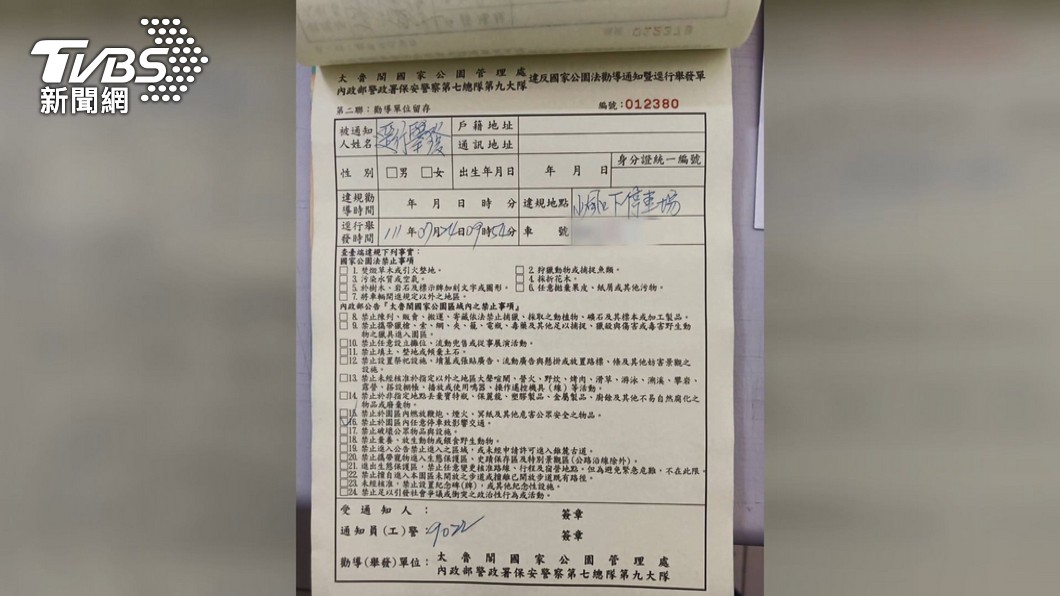 TVBS
新聞網
太魯閣國家公園管理處
內政部警政署保安警察第七總隊第九大隊
違反國家公園法勸導通知暨逕行舉發單
第二聯：勸導單位留存
編號：012380
被通知人姓名 逕行舉發 戶籍地址
通訊地址
性別 □男 □女 出生年月日 年 月 日 身分證統一編號
違規勸導時間 年 月 日 時 分 違規地點 小風口下停車場
逕行舉發時間 111年07月24日09時52分 車號
查臺端違規下列事實：
國家公園法禁止事項
□1.焚燬草木或引火整地。 □2.狩獵動物或捕捉魚類。
□3.污染水質或空氣。 □4.採折花木。
□5.於樹木、岩石及標示牌加刻文字或圖形。 □6.任意拋棄果皮、紙屑或其他污物。
□7.將車輛開進規定以外之地區。
內政部公告「太魯閣國家公園區域內之禁止事項」
□8.禁止陳列、販賣、搬運、寄藏依法禁止捕獵、採取之動植物、礦石及其標本或加工製品。
□9.禁止攜帶獵槍、索、網、夾、籠、電瓶、毒藥及其他足以捕捉、獵殺與傷害或毒害野生動
物之獵具進入園區。
□10.禁止任意設立攤位、流動兜售或從事展演活動。
□11.禁止填土、整地或傾棄土石。
□12.禁止設置祭祀設施、墳墓或張貼廣告、流動廣告與懸掛或放置路標、條及其他妨害景觀之
設施。
□13.禁止未經核准於指定以外之地區大聲喧鬧、營火、野炊、烤肉、滑草、游泳、溯溪、攀岩、
露營、搭設棚帳、播放或使用鳴器、操作遙控機具(線)等活動。
□14.禁止於非指定地點丟棄寶特瓶、保麗龍、塑膠製品、金屬製品、廚餘及其他不易自然腐化之
物品或廢棄物。
□15.禁止於園區內燃放鞭炮、煙火、冥紙及其他危害公眾安全之物品。
☑16.禁止於園區內任意停車致影響交通。
□17.禁止破壞公眾物品與設施。
□18.禁止棄養、放生動物或餵食野生動物。
□19.禁止進入公告禁止進入之區域，或未經申請許可進入錐麓古道。
□20.禁止攜帶寵物進入生態保護區、史蹟保存區及特別景觀區(公路沿線除外)。
□21.進出生態保護區，禁止任意變更核准路線、行程及宿營地點。但為避免緊急危難，不在此限。
□22.禁止擅自進入本園區未開放之步道或擅離已開放步道既有路徑。
□23.未經核准，禁止設置紀念碑(牌)，或其他紀念性設施。
□24.禁止足以引發社會爭議或衝突之政治性行為或活動。
受通知人： 簽章
通知員(工)警：9022 簽章
勸導(舉發)單位：太魯閣國家公園管理處
內政部警政署保安警察第七總隊第九大隊